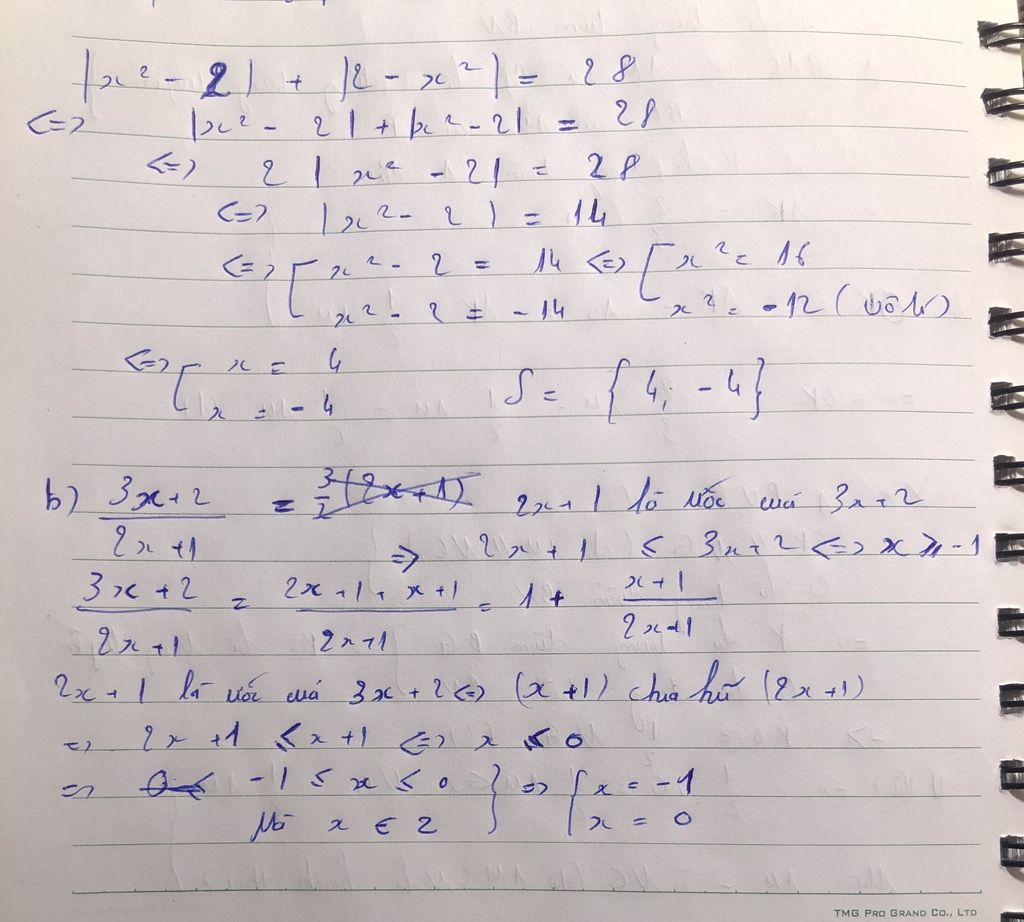 |x² - 2| + |2 - x²| = 28
<=> |x² - 2| + |x² - 2| = 28
<=> 2 |x² - 2| = 28
<=> |x² - 2| = 14
<=> [ x² - 2 = 14 <=> [ x² = 16
x² - 2 = -14 x² = -12 (vô lí)
<=> [ x = 4 S = {4; -4}
x = -4
b) (3x+2)/(2x+1) = 2x+1 là ước của 3x+2
=> 2x+1 ≤ 3x+2 <=> x ≥ -1
(3x+2)/(2x+1) = (2x+1+x+1)/(2x+1) = 1 + (x+1)/(2x+1)
2x+1 là ước của 3x+2 <=> (x+1) chia hết (2x+1)
=> 2x+1 ≤ x+1 <=> x ≤ 0
=> -1 ≤ x ≤ 0 } => { x = -1
Mà x ∈ Z x = 0
TMG PRO GRAND CO., LTD